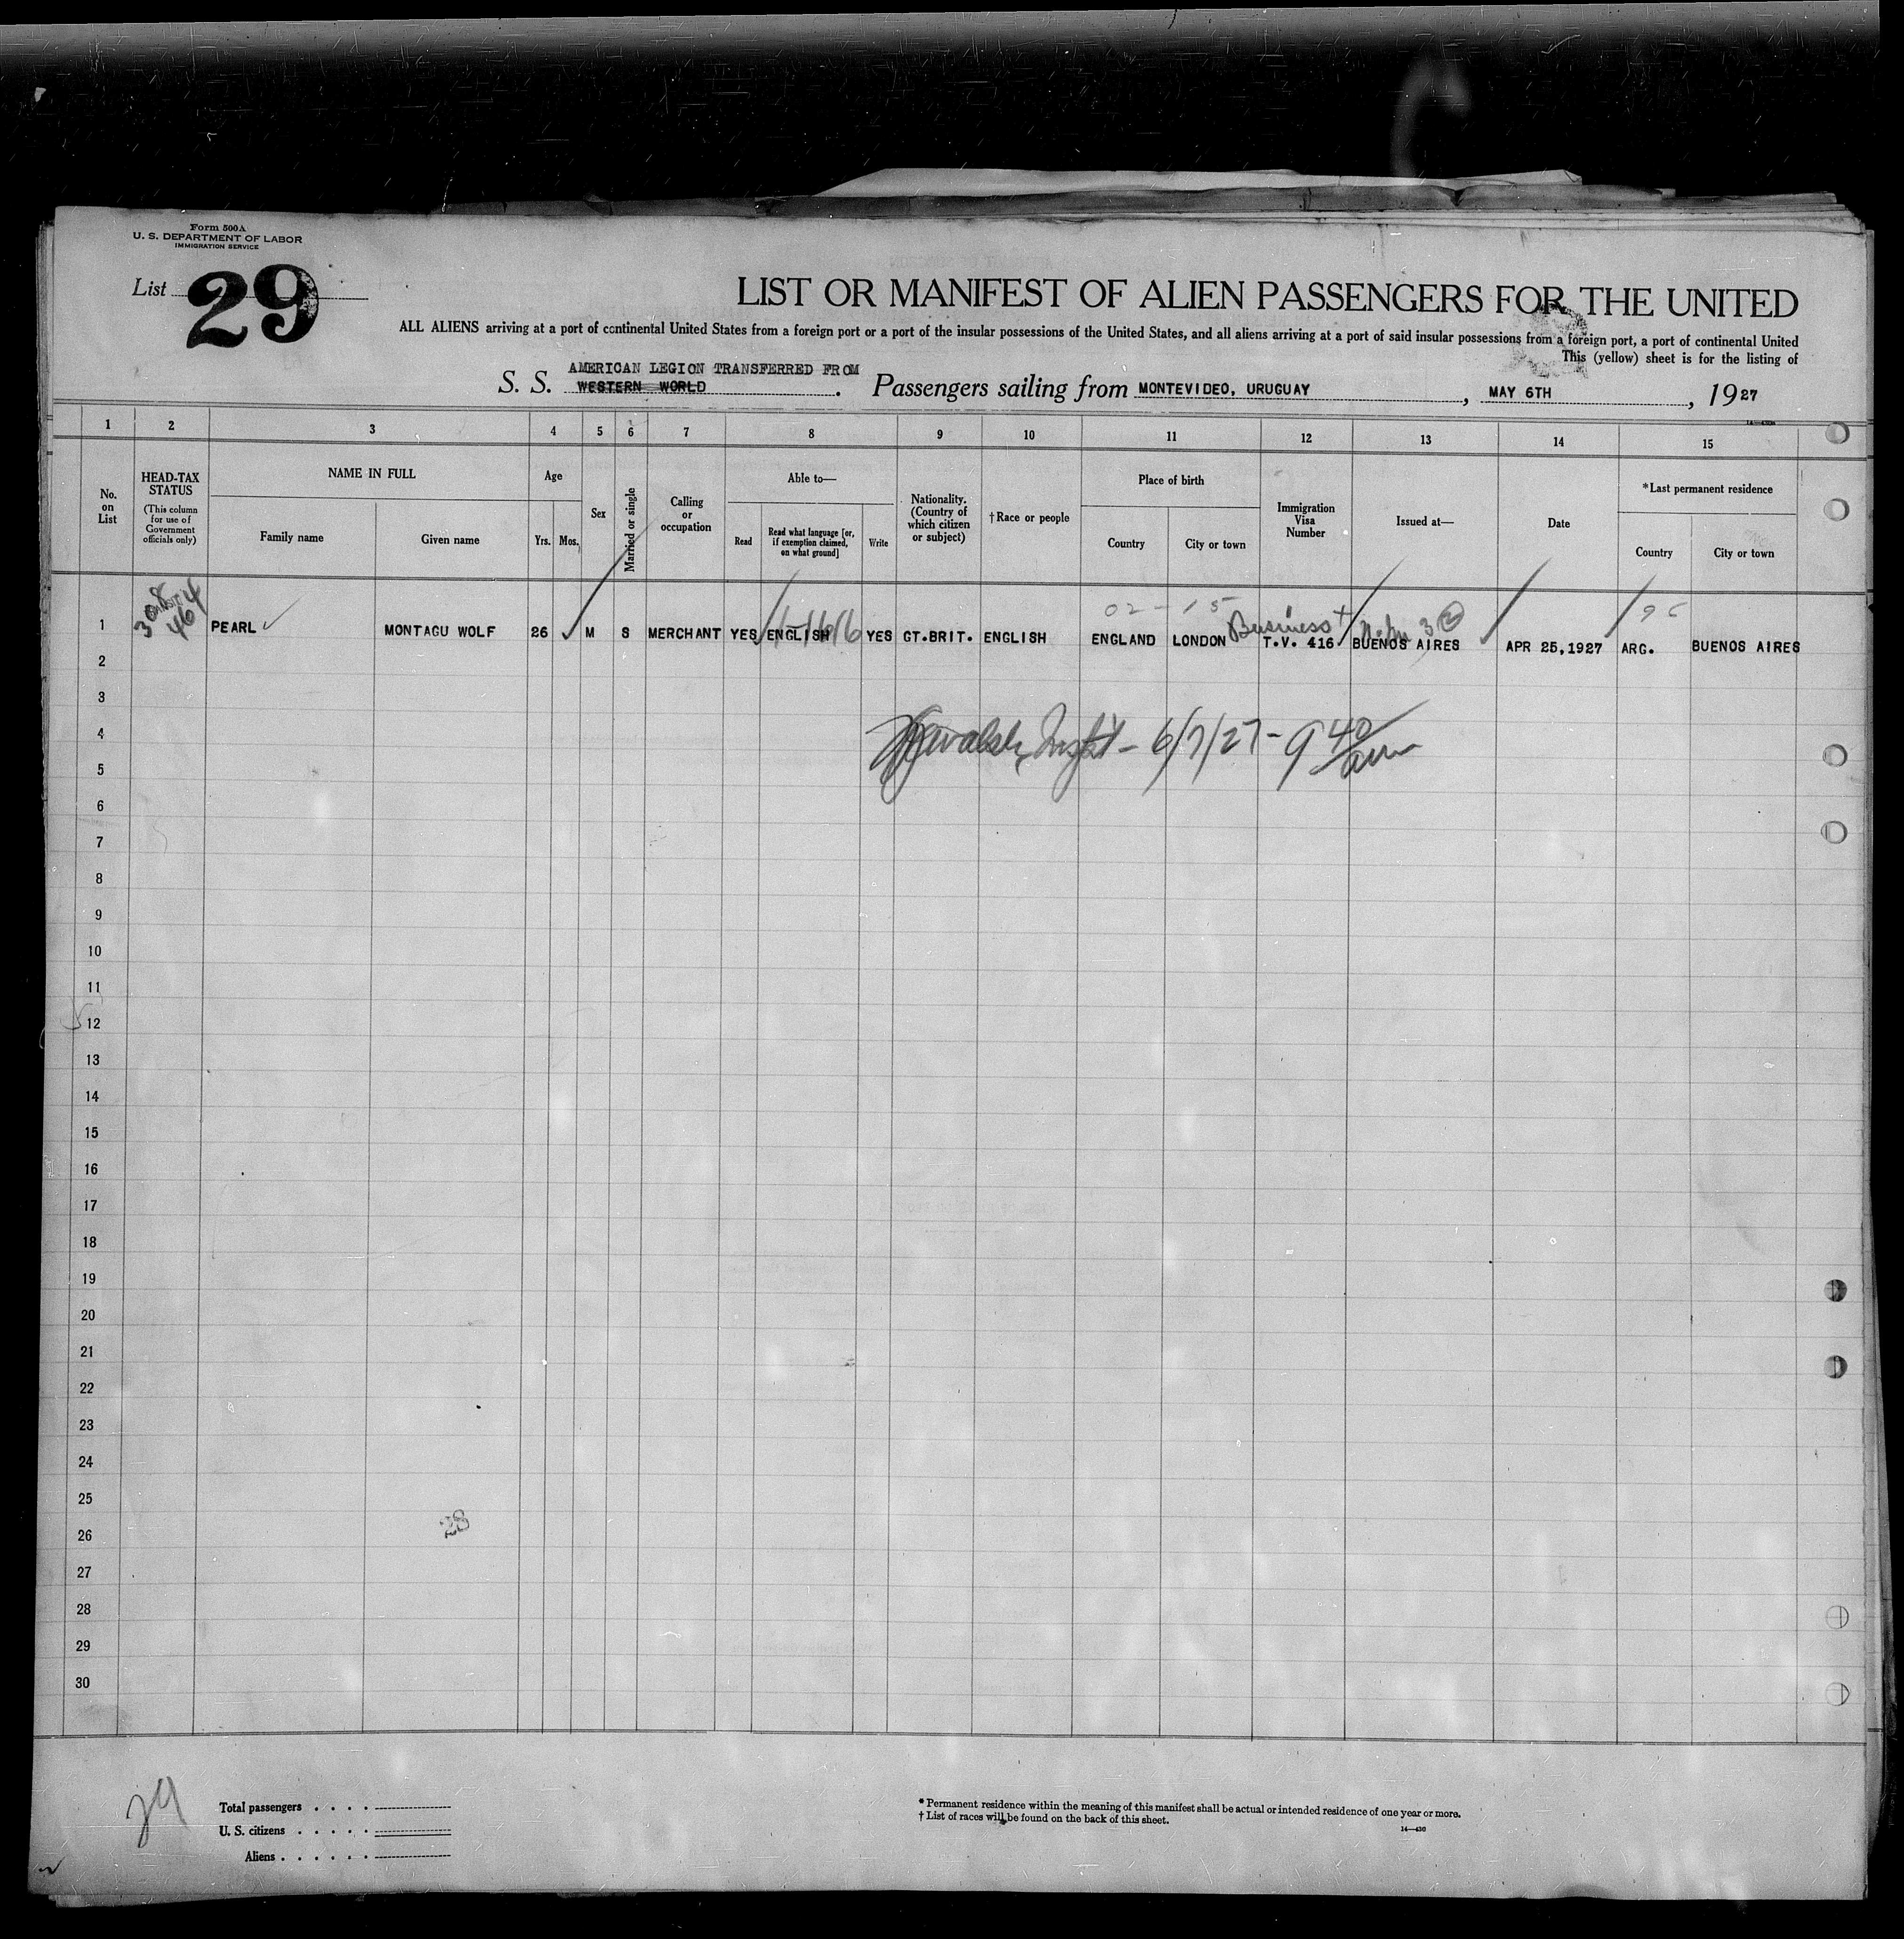 Form 500A
U. S. DEPARTMENT OF LABOR
IMMIGRATION SERVICE
List 29
LIST OR MANIFEST OF ALIEN PASSENGERS FOR THE UNITED
ALL ALIENS arriving at a port of continental United States from a foreign port or a port of the insular possessions of the United States, and all aliens arriving at a port of said insular possessions from a foreign port, a port of continental United
This (yellow) sheet is for the listing of
AMERICAN LEGION TRANSFERRED FROM
S. S. WESTERN WORLD. Passengers sailing from MONTEVIDEO, URUGUAY, MAY 6TH, 1927
1 2 3 4 5 6 7 8 9 10 11 12 13 14 15
No. on List
HEAD-TAX STATUS
(This column for use of Government officials only)
NAME IN FULL
Family name
Given name
Age
Yrs.
Mos.
Sex
Married or single
Calling or occupation
Able to—
Read
Read what language [or, if exemption claimed, on what ground]
Write
Nationality. (Country of which citizen or subject)
†Race or people
Place of birth
Country
City or town
Immigration Visa Number
Issued at—
Date
*Last permanent residence
Country
City or town
02-15
Business
1 PEARL MONTAGU WOLF 26 M S MERCHANT YES ENGLISH YES GT.BRIT. ENGLISH ENGLAND LONDON T.V. 416 BUENOS AIRES APR 25,1927 ARG. BUENOS AIRES
2
3
4
6/7/27 - 9 40
5
6
7
8
9
10
11
12
13
14
15
16
17
18
19
20
21
22
23
24
25
26
28
27
28
29
30
29
Total passengers . . . .
U. S. citizens . . . . .
Aliens . . . . . .
* Permanent residence within the meaning of this manifest shall be actual or intended residence of one year or more.
† List of races will be found on the back of this sheet.